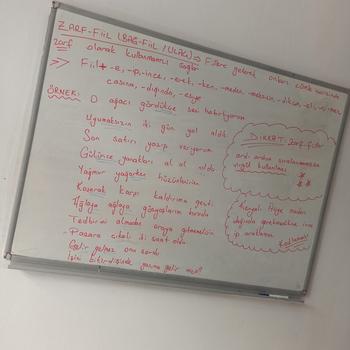 ZARF-FİİL (BAĞ-FİİL / ULAÇ) → Fiillere gelerek onları cümle içerisinde
zarf olarak kullanmamızı sağlar
>> Fiil + -e, -ıp, -ince, -erek, -ken, -meden, -meksizin, -dikçe, -eli, -r -mez
casına, -dığında, -esiye
ÖRNEK: O ağacı gördükçe seni hatırlıyorum
Uyumaksızın iki gün yol aldık
Son satırı yazıp veriyorum
Gülünce yanakları al al oldu
Yağmur yağarken hüzünlenirim
Koşarak karşı kaldırıma geçti
Ağlaya ağlaya gözyaşların kurudu
Tedbirini almadan oraya gitmemelisin
- Pazara çıkalı iki saat oldu
Gelir gelmez onu sordu
İşini bitirdiğinde yanıma gelir misin?
DİKKAT: Zarf-fiiller
ardı ardına sıralanmamışsa
virgül kullanılmaz